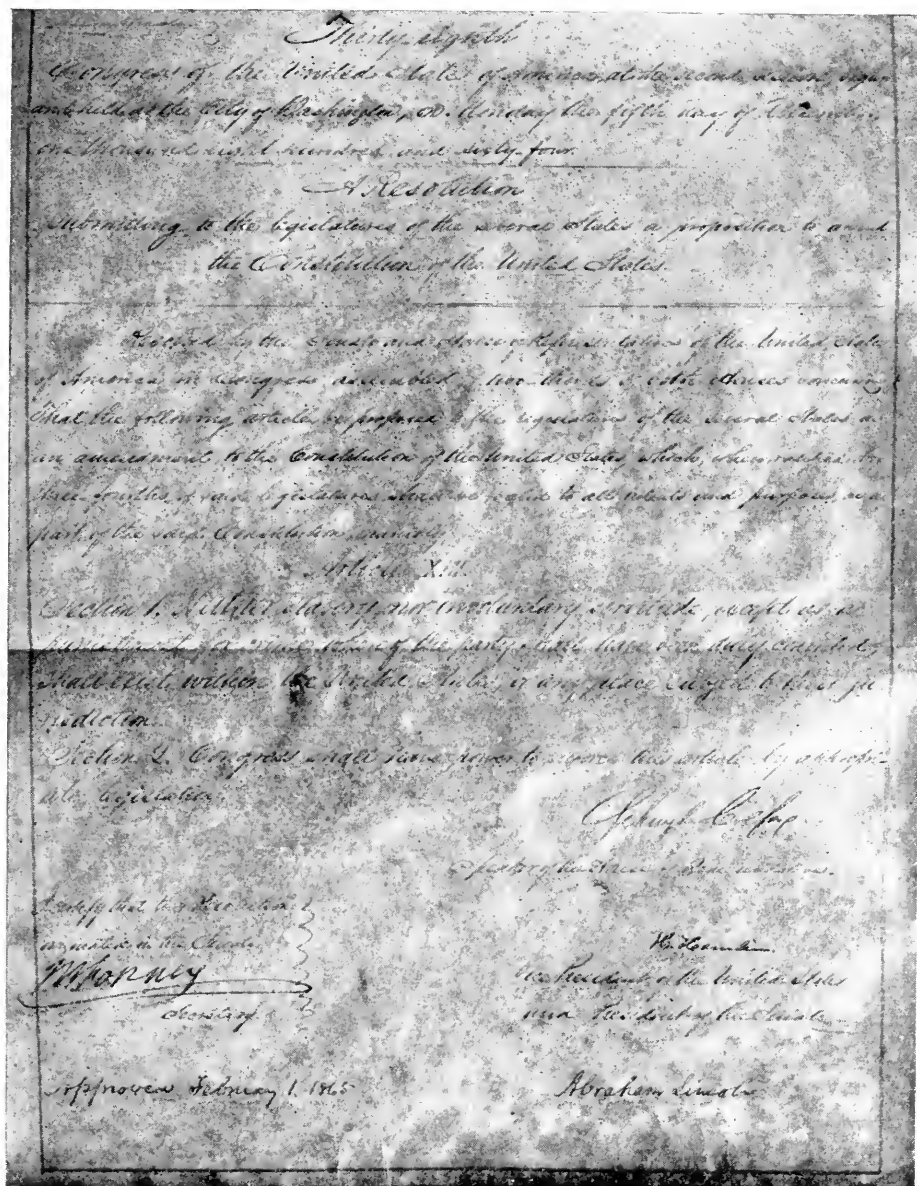 Thirty-eighth
Congress of the United States of America, at the second session, begun
and held at the City of Washington, on Monday the fifth day of December,
one thousand eight hundred and sixty-four.
A Resolution
submitting to the legislatures of the several States a proposition to amend
the Constitution of the United States.
Resolved by the Senate and House of Representatives of the United States
of America in Congress assembled, two-thirds of both Houses concurring,
That the following article be proposed to the legislatures of the several States as
an amendment to the Constitution of the United States, which, when ratified by
three-fourths of said legislatures, shall be valid to all intents and purposes, as a
part of the said Constitution, namely:
Article XIII.
Section 1. Neither slavery nor involuntary servitude, except as a
punishment for crime whereof the party shall have been duly convicted,
shall exist within the United States, or any place subject to their ju-
risdiction.
Section 2. Congress shall have power to enforce this article by appropri-
ate legislation.
Schuyler Colfax
Speaker of the House of Representatives.
I certify that this Resolution
originated in the Senate
JW Forney
Secretary
H. Hamlin
Vice President of the United States
and President of the Senate
Approved February 1, 1865
Abraham Lincoln